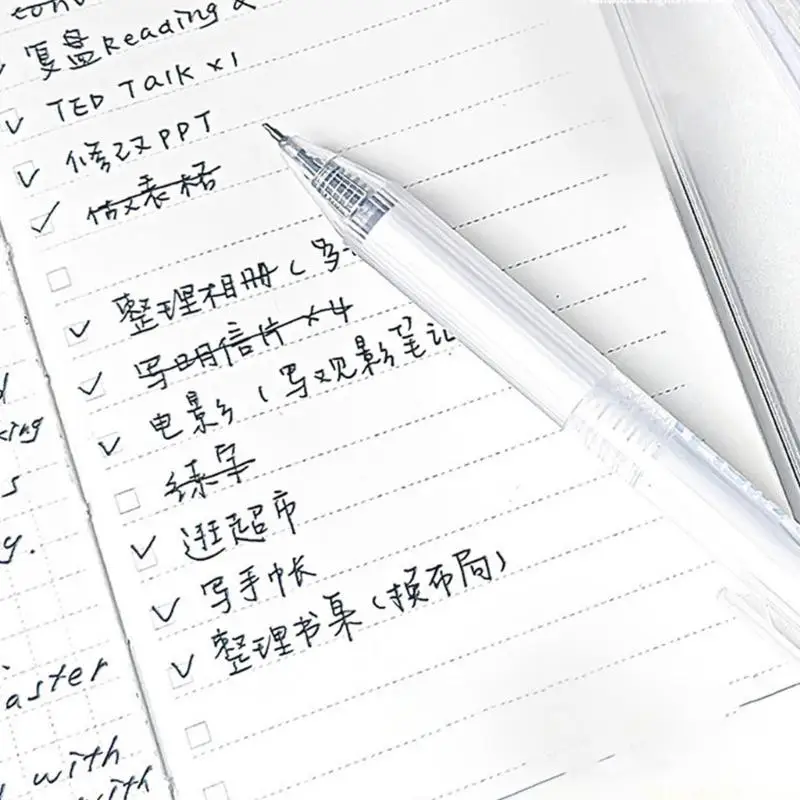 复盘Reading &
TED Talk x1
修改PPT
做表格
整理相册(多
写明信片 x4
电影(写观影笔记
练字
逛超市
写手帐
整理书桌(换布局)
king
s
y.
aster
with
with